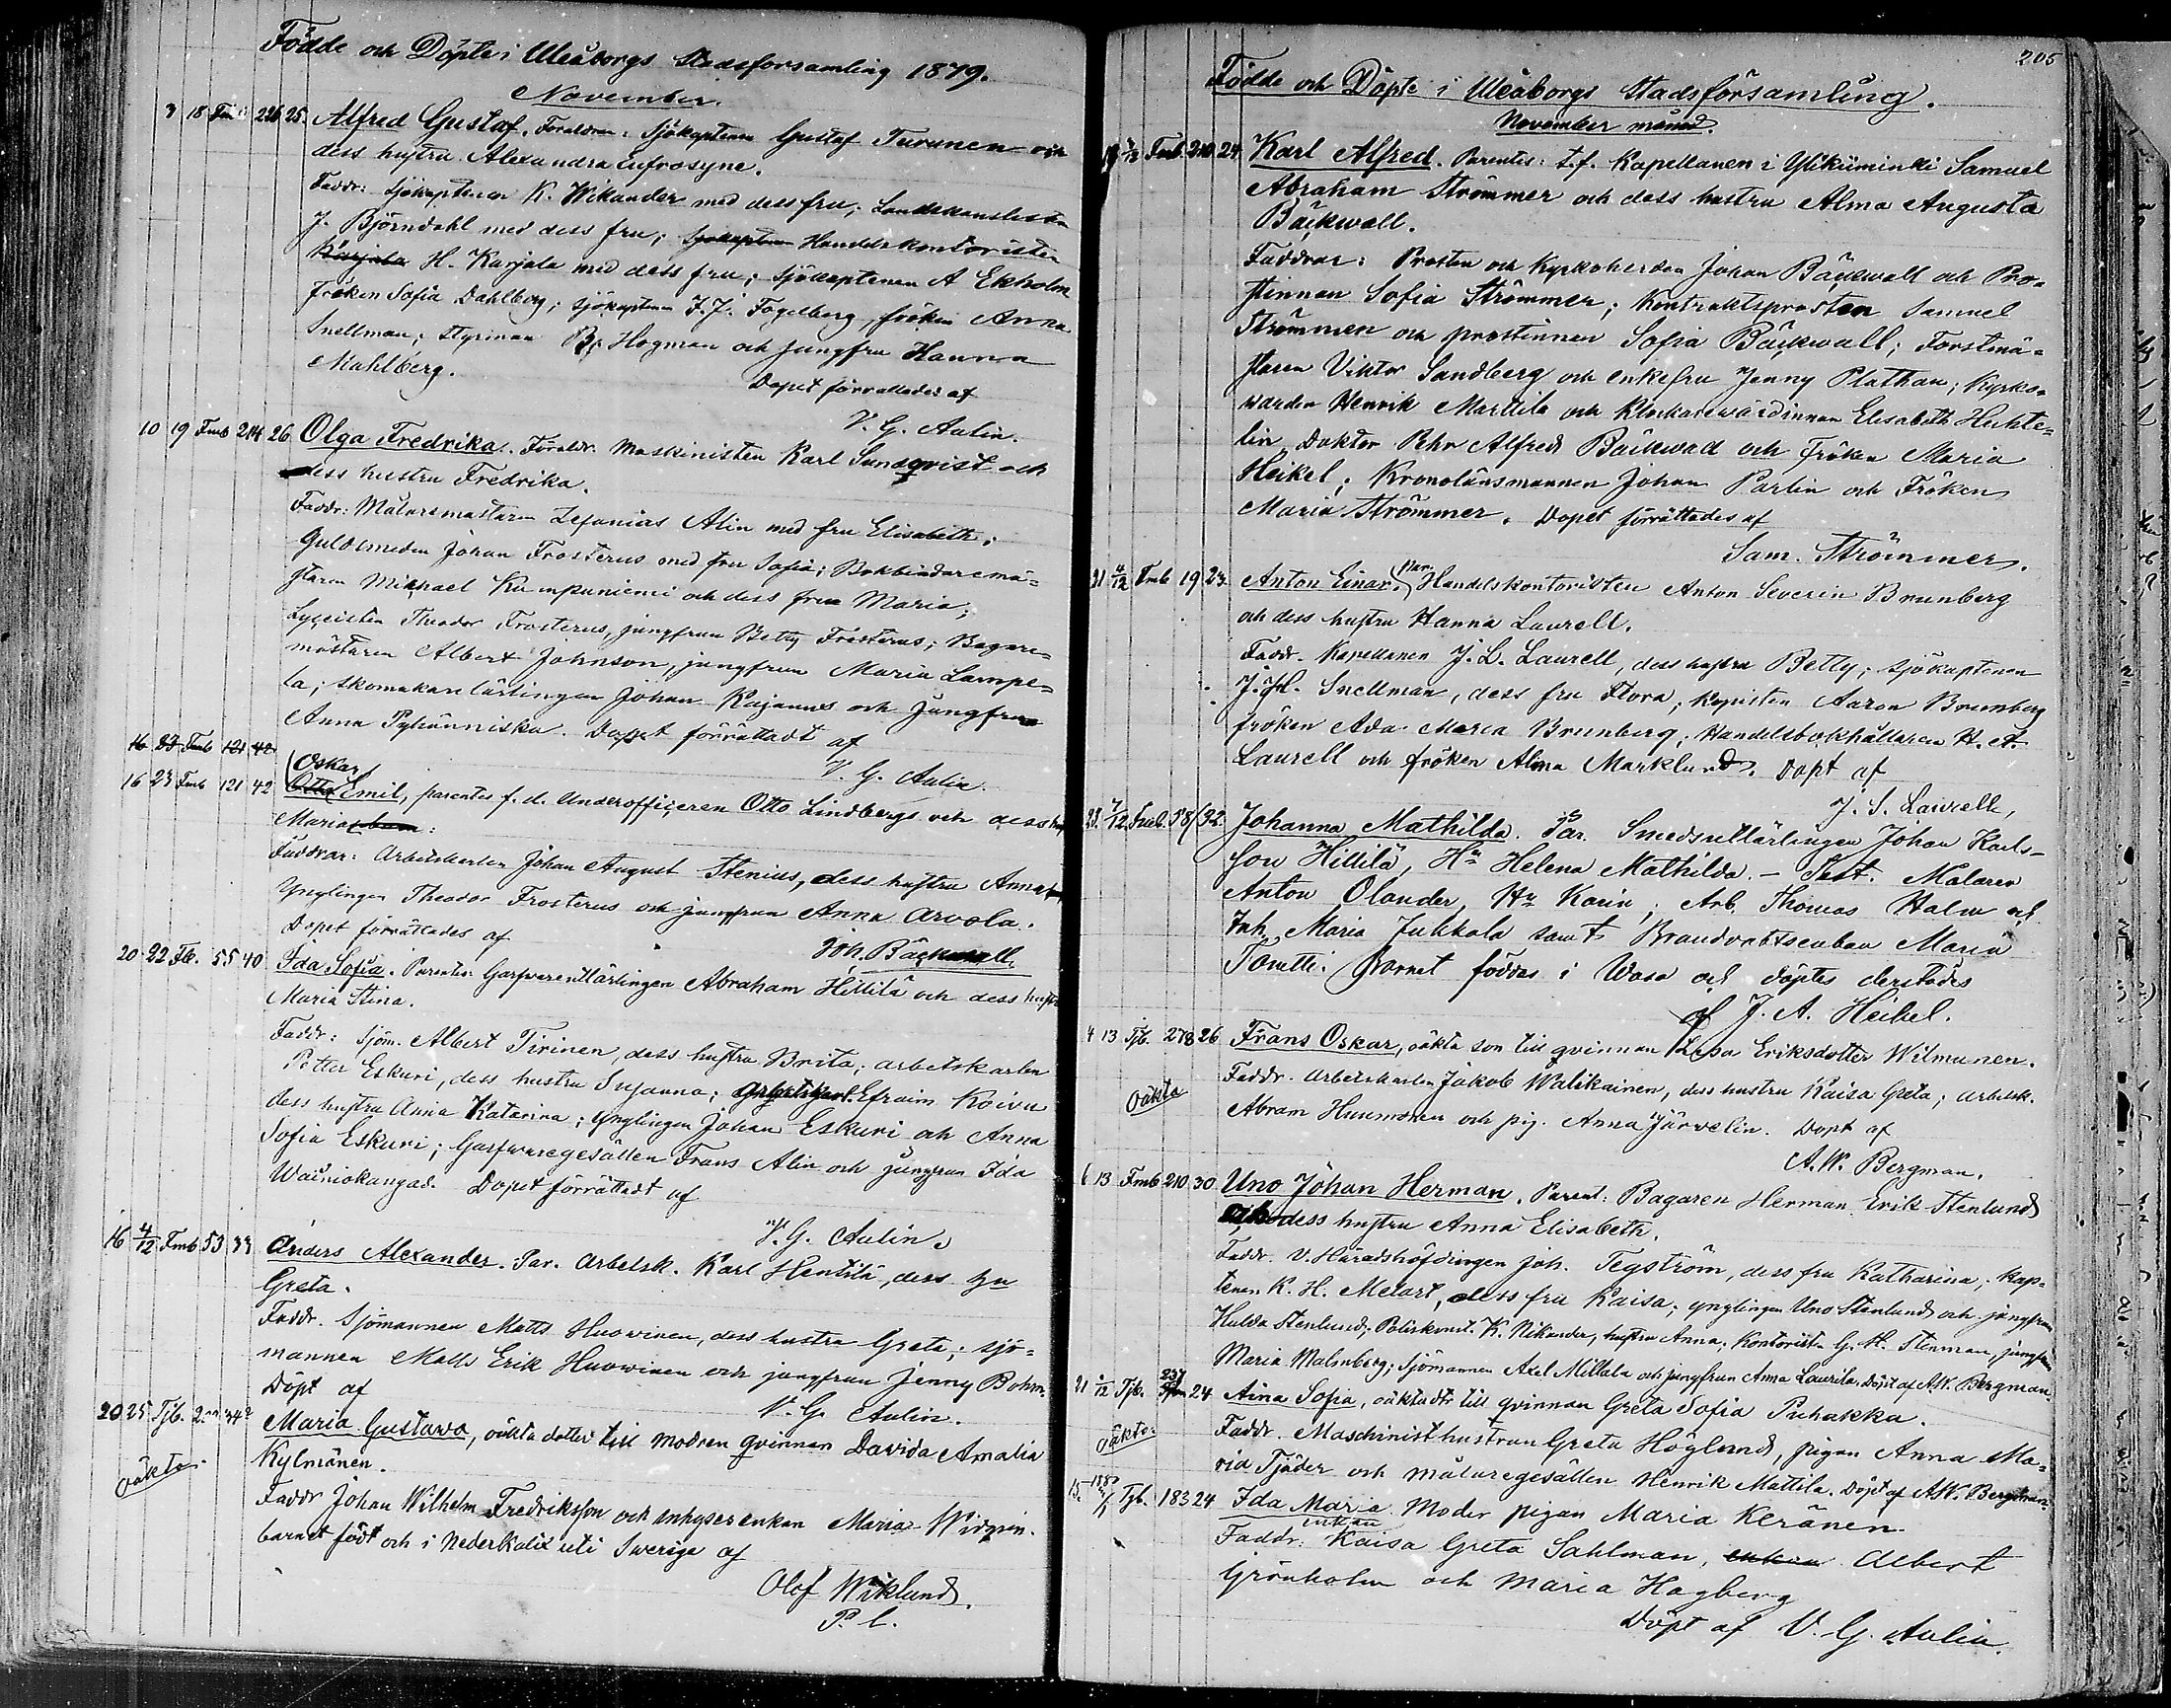 Födde och Döpte i Uleåborgs Stadsförsamling 1879.
November.
3 18 Fmb 226 25. Alfred Gustaf. Föräldrar: Sjökaptenen Gustaf Turunen och
dess hustru Alexandra Eufrosyne.
Faddr: Sjökaptenen K. Wikander med dess fru; Landskanslisten
J. Björndahl med dess fru; Handelskontoristen
Karjala H. Karjala med dess fru; Sjökaptenen A Ekholm
fröken Sofia Dahlberg; sjökaptenen J. J. Fogelberg, fröken Anna
Snellman; Styrman Hogman och jungfru Hanna
Mahlberg. Dopet förrättades af
V. G. Aulin.
10 19 Fmb 214 26 Olga Fredrika. Föräldr. Maskinisten Karl Sundqvist och
dess hustru Fredrika.
Faddr: Målaremästaren Zefanias Alin med fru Elisabeth;
Guldsmeden Johan Frosterus med fru Sofia; Bokbindaremä-
staren Mikhael Kumpuniemi och dess fru Maria;
Lyceisten Theodor Frosterus, jungfrun Betty Frosterus; Bagare-
mästaren Albert Johnson, jungfrun Maria Lampe-
la; skomakarelärlingen Johan Kajanus och Jungfrun
Anna Pyhänniska. Dopet förrättadt af
V. G. Aulin.
16 23 Fmb 121 42
Oskar
16 23 Fmb 121 42 Otto Emil, parentes f. d. Underofficeren Otto Lindbergs och dess
Maria
Faddrar: Arbetskarlen Johan August Stenius, dess hustru Anna
Ynglingen Theodor Frosterus och jungfrun Anna Arvola.
Dopet förrättades af
Joh. Bäckwall.
20 22 Fb. 55 40 Ida Sofia. Parentes: Garfvarentlärlingen Abraham Hiltilä och dess hustru
Maria Stina.
Faddr: Sjöm. Albert Tirinen, dess hustru Brita; arbetskarlen
Petter Eskuri, dess hustru Susanna; Efraim Koivu
dess hustru Anna Katarina; ynglingen Johan Eskuri och Anna
Sofia Eskuri; Garfvaregesällen Frans Alin och jungfrun Ida
Wainiokangas. Dopet förrättadt af
V. G. Aulin.
16 4/12 Fmb 53 33 Anders Alexander. Par. Arbetsk. Karl Hentilä, dess hu
Greta.
Faddr. Sjömannen Matts Huovinen, dess hustru Greta; sjö-
mannen Matts Erik Huovinen och jungfrun Jenny Bohm.
Döpt af
V. G. Aulin.
20 25 Tjb. Maria Gustava, oäkta dotter till modren qvinnan Davida Amalia
Oäkta. Kylmänen.
Faddr Johan Wilhelm Fredriksson och inhyses enkan Maria Widgrén.
barnet födt och i Nederkalix uti Swerige af
Olof Wiklund.
P. l.
205
Födde och Döpte i Uleåborgs Stadsförsamling.
November månad.
Fmb. 210 24 Karl Alfred. Parentes: t.f. Kapellanen i Ylikiiminki Samuel
Abraham Strömmer och dess hustru Alma Augusta
Bäckwall.
Faddrar: Prosten och Kyrkoherden Johan Bäckwall och Pro-
stinnan Sofia Strömmer; Kontraktsprosten Samuel
Strömmer och prostinnan Sofia Bäckwall; Forstmä-
staren Viktor Sandberg och enkefru Jenny Plathan; Kyrko-
värden Henrik Marttila och Klockarewärdinnan Elisabeth Huhte-
lin Doktor Pehr Alfred Bäckwall och fröken Maria
Heikel; Kronolänsmannen Johan Parlin och Fröken
Maria Strömmer. Dopet förrättades af
Sam. Strömmer.
21 4/12 Fmb 19 23. Anton Einar. Par. Handelskontoristen Anton Severin Brunberg
och dess hustru Hanna Laurell.
Faddr. Kapellanen J. L. Laurell, dess hustru Betty; sjökaptenen
J. H. Snellman, dess fru Flora, kopisten Aaron Brunberg
fröken Ada Maria Brunberg; Handelsbokhållaren H. A.
Laurell och fröken Alma Marklund. Döpt af
J. L. Laurell,
23. 7/12 Fmb. 58/32 Johanna Mathilda. Par. Smedsutlärlingen Johan Karls-
son Hiltilä, Hu Helena Mathilda. - Test. Målaren
Anton Olander, Hu Karin; Arb. Thomas Halm och
Inh. Maria Jukkola samt Brandvaktsenkan Maria
Toretti. Barnet föddes i Wasa och döptes derstädes
af J. A. Heikel.
4 13 Tjb. 278 26 Frans Oskar, oäkta son till qvinnan Lisa Eriksdotter Wilmunen.
Oäkta Faddr. Arbetskarlen Jakob Walikainen, dess hustru Kaisa Greta; arbetsk.
Abram Huumonen och pig. Anna Järvelin. Döpt af
A. W. Bergman.
6 13 Fmb 210 30 Uno Johan Herman. Parent: Bagaren Herman Erik Stenlund
och dess hustru Anna Elisabeth.
Faddr. V. Häradshöfdingen Joh. Tegström, dess fru Katharina; kap-
tenen K. H. Melart, dess fru Kaisa; ynglingen Uno Stenlund och jungfrun
Hulda Stenlund; Poliskonst. K. Nikander, hustru Anna; Kontoristen G. H. Stenman, jungfrun
Maria Malmberg; Sjömannen Axel Millala och jungfrun Anna Laurila. Döpt af A. W. Bergman.
21 1/12 Tjb. 237 24 Aina Sofia, oäkta dtr till qvinnan Greta Sofia Puhakka.
Oäkta. Faddr. Maschinisthustrun Greta Höglund, pigan Anna Ma-
ria Tjäder och målaregesällen Henrik Mattila. Döpt af A. W. Bergman.
15. 1880 Tjb. 183 24 Ida Maria Moder pigan Maria Keränen
Faddr: enkan Kaisa Greta Sahlman, enkan Albert
Grönholm och Maria Hagberg
Döpt af V. G. Aulin.